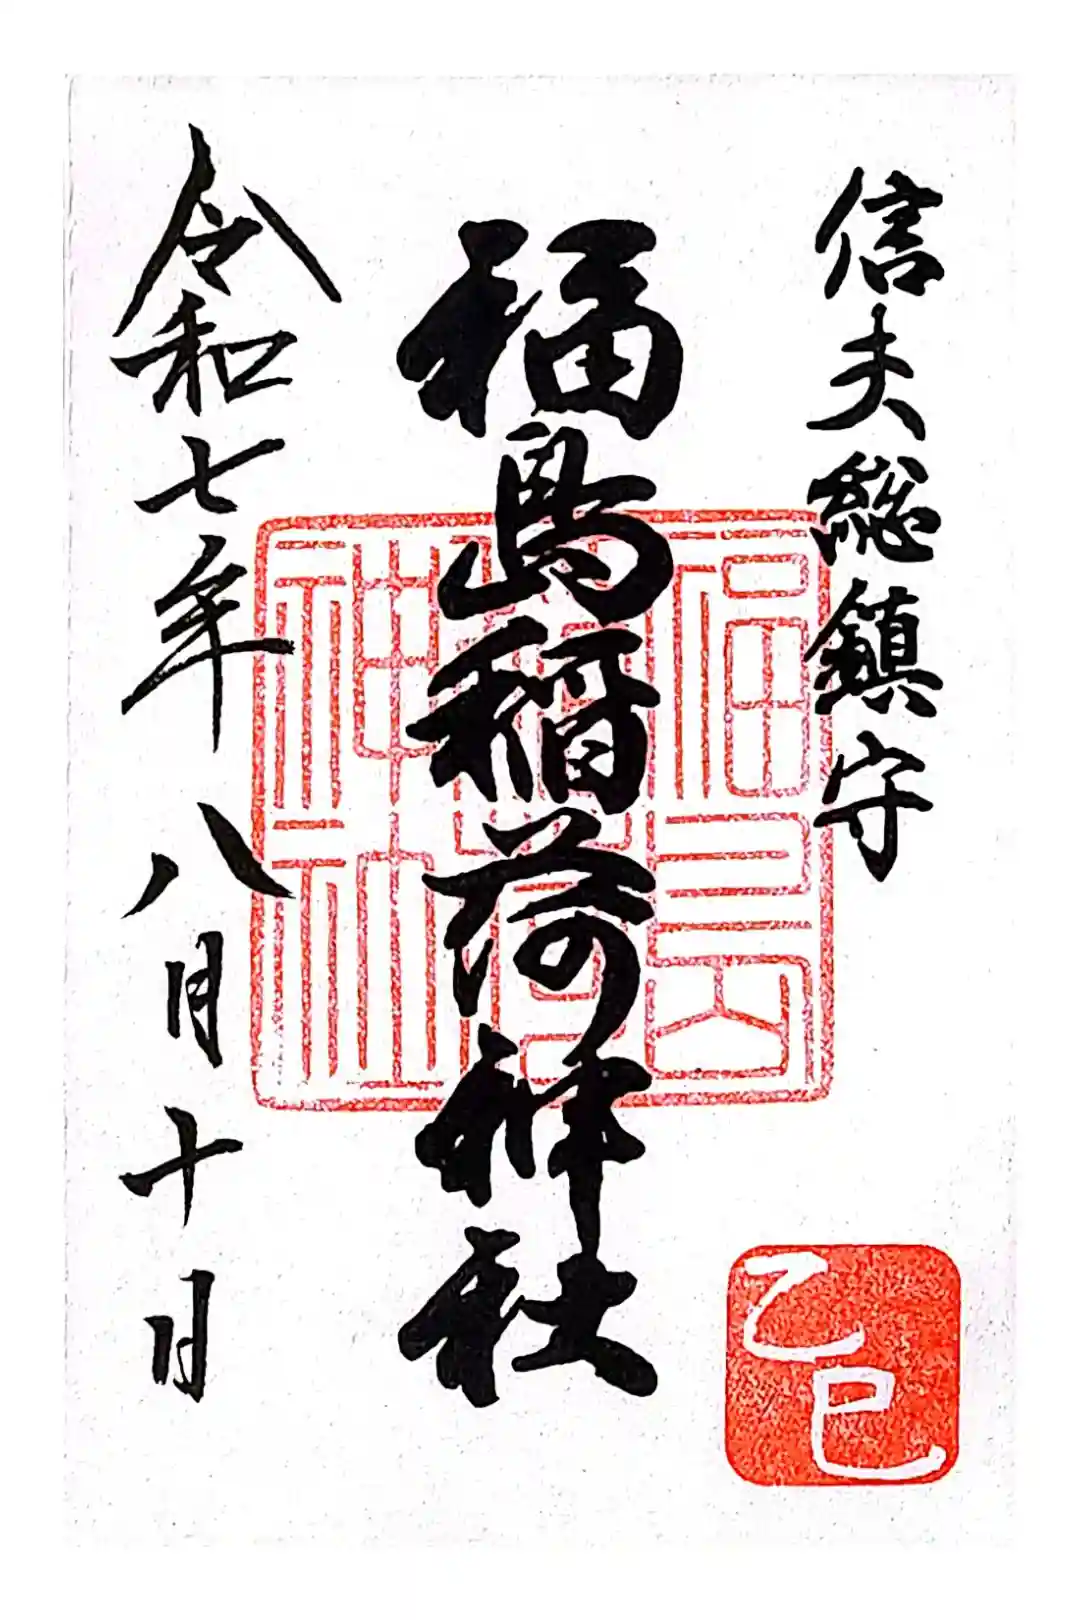 信夫総鎮守
福島稲荷神社
福島
稲荷
神社
令和七年八月十日
乙巳